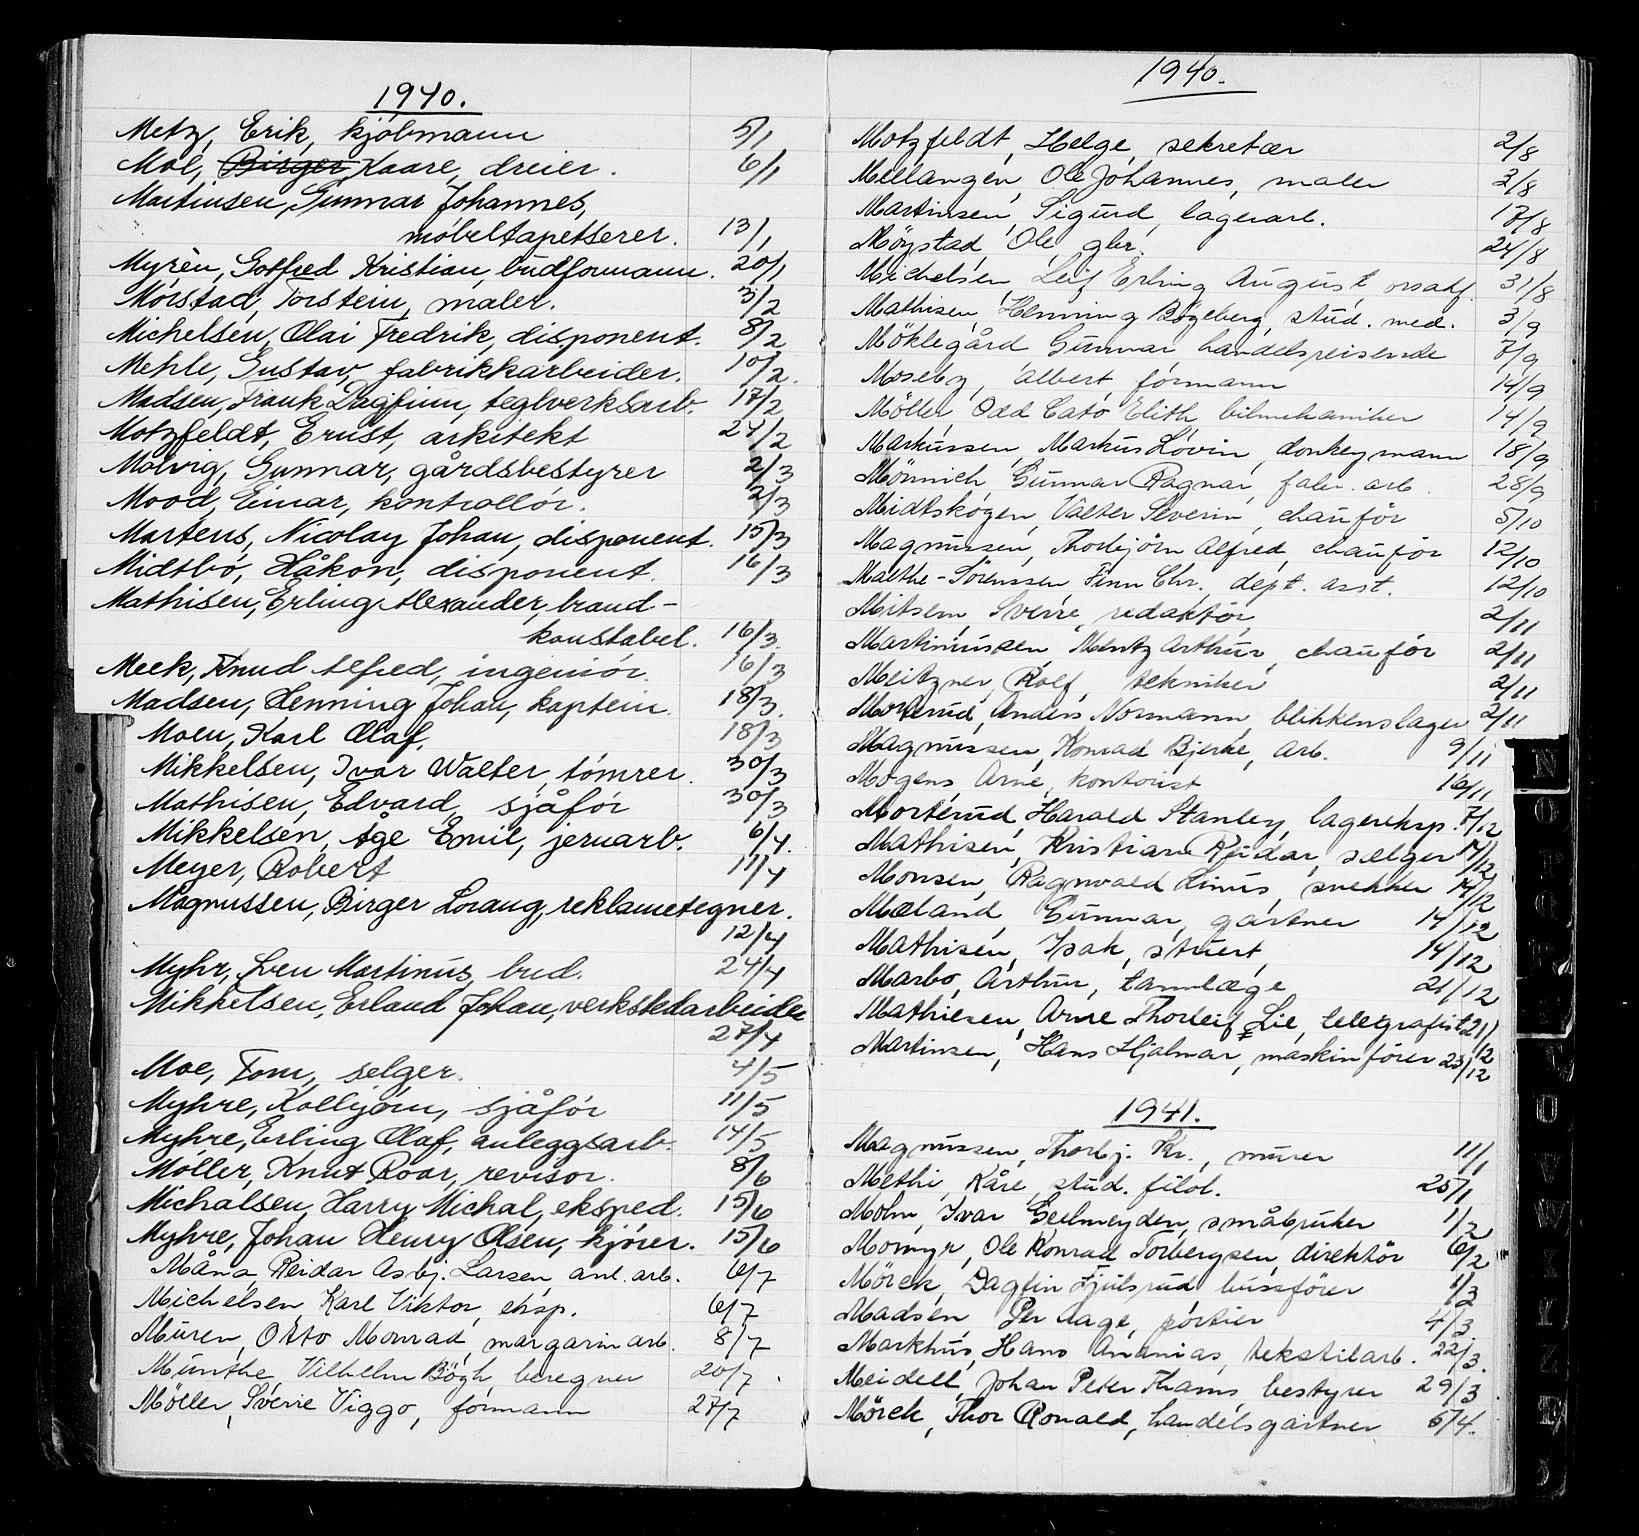 1940.
Metz, Erik, kjöbmann 5/1
Mol, Birger Kaare, dreier. 6/1
Martinsen, Gunnar Johannes,
möbeltapetserer. 13/1
Myrèn, Gotfred Kristian, budformann. 20/1
Mörstad, Torstein, maler. 3/2
Michelsen, Olai Fredrik, disponent. 8/2
Mehle, Gustav, fabrikkarbeider. 10/2.
Madsen, Frank Dagfinn, teglverksarb. 17/2
Motzfeldt, Ernst, arkitekt 24/2
Molvig, Gunnar, gårdsbestyrer 2/3
Mood, Einar, kontrollör. 2/3
Martens, Nicolay Johan, disponent. 15/3
Midtbö, Håkon, disponent. 16/3
Mathisen, Erling Alexander, brand-
konstabel. 16/3
Meek, Knud Alfred, ingeniör. 16/3
Madsen, Henning Johan, kaptein. 18/3.
Moen, Karl Olaf. 18/3
Mikkelsen, Ivar Walter, tömrer. 30/3
Mathisen, Edvard, sjåför 30/3
Mikkelsen, Åge Emil, jernarb. 6/4.
Meyer, Robert 11/4
Magnussen, Birger Lorang, reklametegner.
12/4
Myhr, Sven Martinus, bud. 24/4
Mikkelsen, Erland Johan, verkstedarbeider
27/4
Moe, Tom, selger. 4/5
Myhre, Kolbjörn, sjåför 11/5
Myhre, Erling Olaf, anleggsarb. 14/5
Möller, Knut Roar, revisor. 8/6
Michalsen, Harry Michal, eksped. 15/6
Myhre, Johan Henry Olsen, kjörer. 15/6
Måna, Reidar Asbj. Larsen, anl. arb. 6/7
Michelsen Karl Viktor, eksp. 6/7
Muren, Otto Monrad, margarinarb. 8/7
Munthe, Vilhelm Bögh, beregner 20/7.
Möller, Sverre Viggo, formann 27/7
1940.
Motzfeldt, Helge, sekretær 2/8
Mellangen, Ole Johannes, maler 3/8
Martinsen, Sigurd, lagerarb. 17/8
Möystad, Ole, gbr. 24/8
Michelsen, Leif Erling August, 31/8
Mathisen, Henning Bögeberg, stud. med. 3/9
Möklegård Gunnar handelsreisende 7/9
Moseby, Albert, formann 14/9
Möller, Odd Cato Elith, bilmekaniker 14/9
Markussen, Markus Lovin, donkeymann 18/9
Mönnich Gunnar Ragnar, fabr. arb. 28/9
Midtskogen, Valter Severin, chauför 5/10
Magnussen, Thorbjörn Alfred, chauför 12/10
Malthe-Sörenssen Finn Chr., dept. asst. 12/10
Mitsem, Sverre, redaktör, 2/11
Martinussen, Mentz Arthur, chauför 2/11
Meitzner, Rolf, tekniker 2/11
Morterud, Anders Normann, blikkenslager 2/11
Magnussen, Konrad Bjerke, arb. 9/11
Mogens, Arne, kontorist 16/11
Morterud, Harald Stanley, lagereksp. 7/12
Mathisen, Kristian Reidar, sælger 14/12
Monsen, Ragnvald Linus, snekker 14/12
Mæland, Gunnar, gartner 14/12
Mathisen, Isak, stuert, 14/12
Marbo, Arthur, tannlæge 21/12
Mathiesen, Arne Thorleif Lie, telegrafist 21/12
Martinsen, Hans Hjalmar, maskinförer 23/12
1941.
Magnussen, Thorbj. Kr., murer 11/1
Methi, Kåre, stud. filol. 25/1
Molin, Ivar Geelmeyden, småbruker 1/2
Momyr, Ole Konrad Torbergsen, direktör 6/2
Mörck, Dagfin Fjulsrud bussförer 1/3
Madsen, Per Aage, portier 4/3.
Markhus, Hans Ananias, tekstilarb. 22/3.
Meidell, Johan Peter Thams, bestyrer 29/3
Mörck, Thor Ronald, handelsgartner 5/4.
N
O
P
T
U
V
W
X
Y
Z
Æ